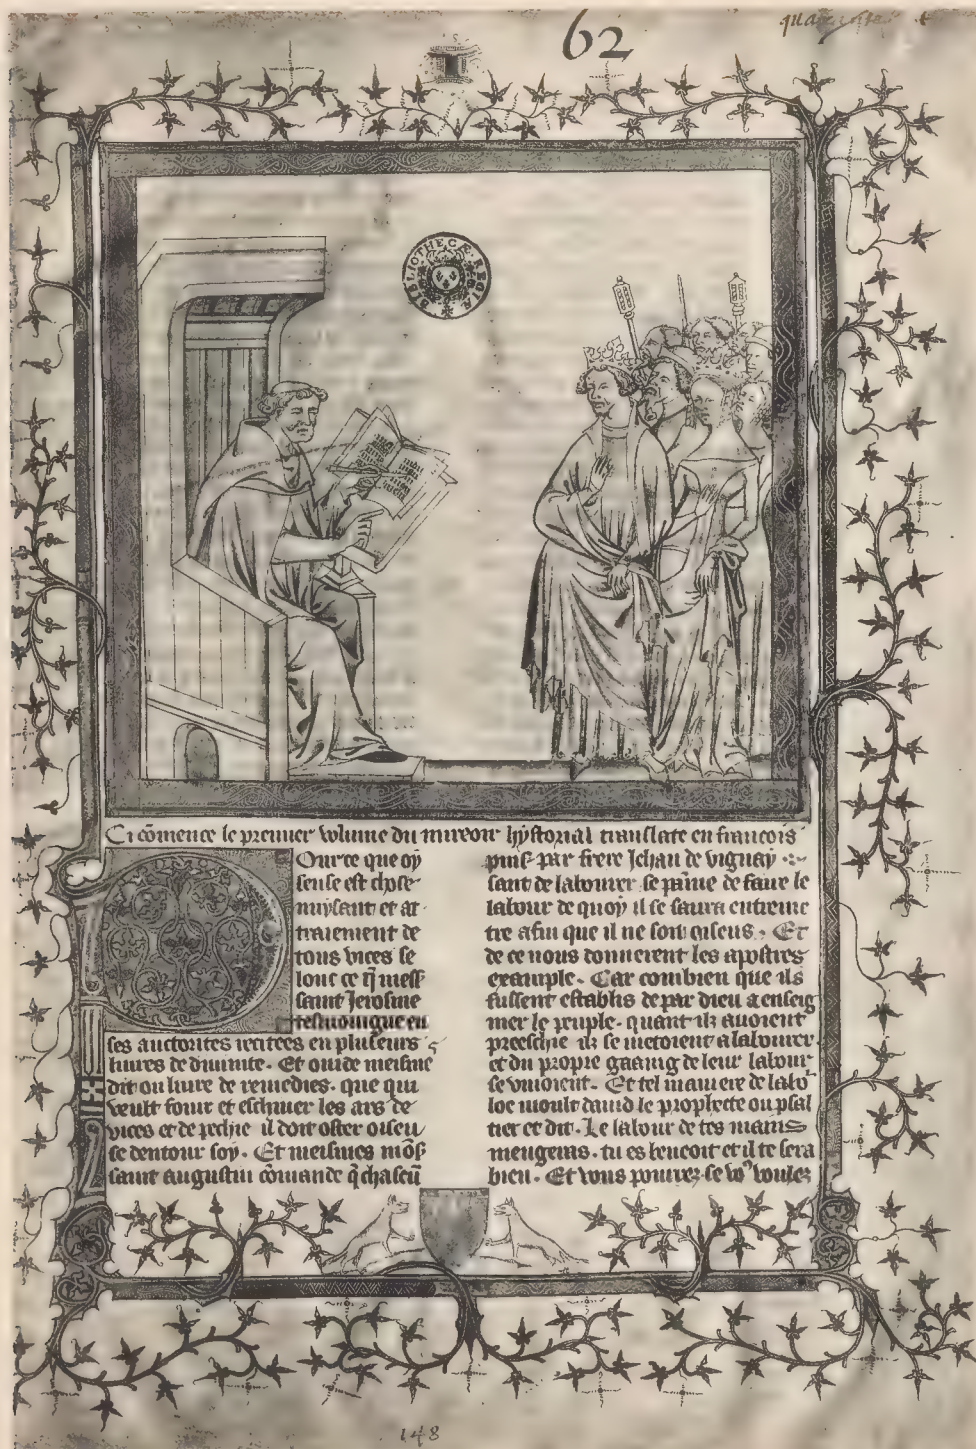 62
BIBLIOTHECÆ REGIÆ
Ci cōmence le premier volume du mireoir hystorial translate en francois
Ource que oy
seuse est chose
nuysant et at
traiement de
tous vices se
lonc ce q̄ mess
saint Jerosme
tesmoingne en
ses auctorites recitees en pluseurs
liures de diuinite. Et ouide meisme
dit ou liure de remedies. que qui
veult fouir et eschiuer les ars de
vices et de pechie il doit oster oiseu
se dentour soy. Et meismes mōs̄
saint augustin cōmande q̄ chascū
puis par frere Jehan de vignay
sant de labourer se paine de faire le
labour de quoy il se saura entreme
tre afin que il ne soit oiseus. Et
de ce nous donnerent les apostres
example. Car combien que ils
fussent establis de par dieu a enseig
nier le peuple. quant ilz auoient
preeschie ilz se metoient a labourer.
et du propre gaaing de leur labour
se viuoient. Et tel maniere de labo
loe moult dauid le prophete ou psal
tier et dit. Le labour de tes mains
mengeras. tu es beneoit et il te sera
bien. Et vous pouuez se voꝰ voulez
148